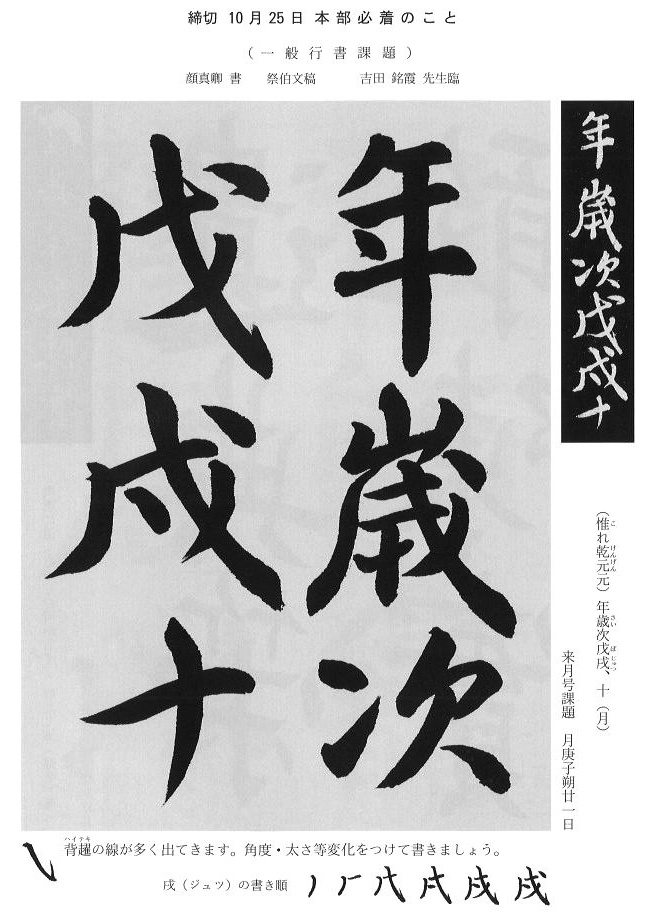 締切 10月25日 本部必着のこと
（一般行書課題）
顔真卿 書 祭伯文稿 吉田 銘霞 先生臨
年歳次戊戌十
年歳次
戊戌十
（惟れ乾元元）年歳次戊戌、十（月）
こ けんげん さい ぼじゅつ
来月号課題 月庚子朔廿一日
ハイテキ
背趯の線が多く出てきます。角度・太さ等変化をつけて書きましょう。
戌（ジュツ）の書き順